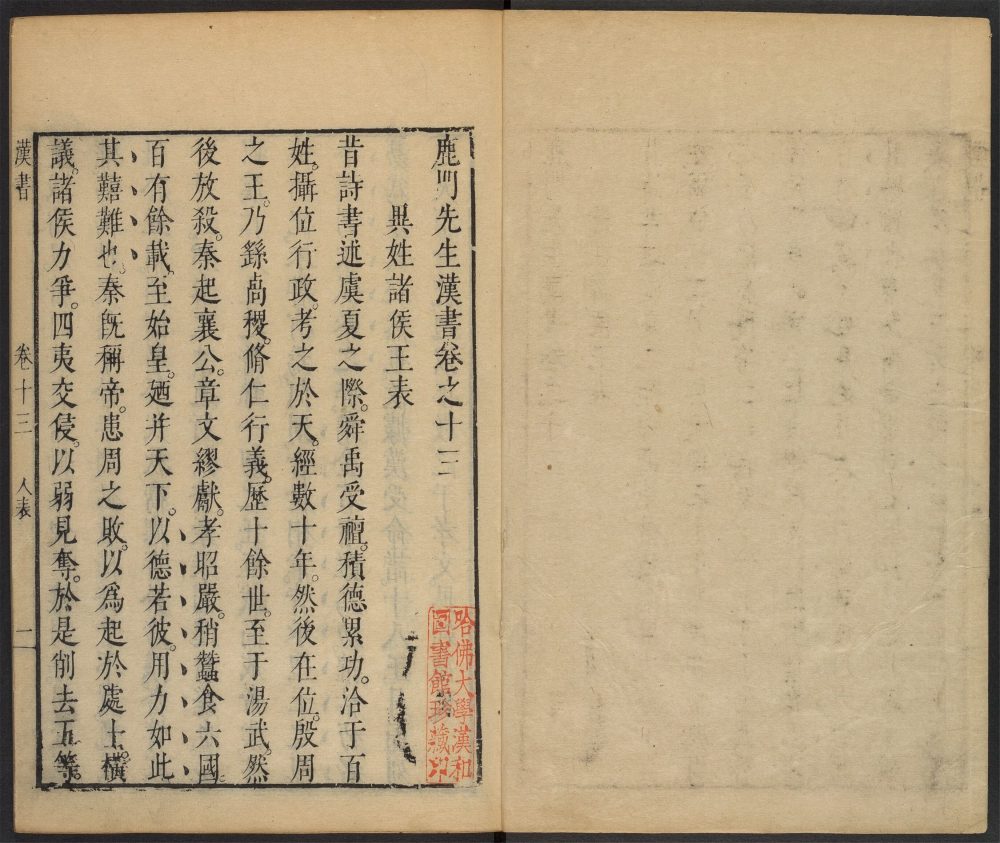 鹿門先生漢書卷之十三
異姓諸侯王表
昔詩書述虞夏之際。舜禹受禪。積德累功。洽于百
姓。攝位行政。考之於天。經數十年。然後在位。殷周
之王。乃繇卨稷。脩仁行義。歷十餘世。至于湯武。然
後放殺。秦起襄公。章文繆獻。孝昭嚴。稍蠶食六國
百有餘載。至始皇。廼并天下。以德若彼。用力如此
其囏難也。秦旣稱帝。患周之敗。以爲起於處士。橫
議。諸侯力爭。四夷交侵。以弱見奪。於是削去五等。
漢書 卷十三 人表 二
哈佛大學漢和
圖書館珍藏印